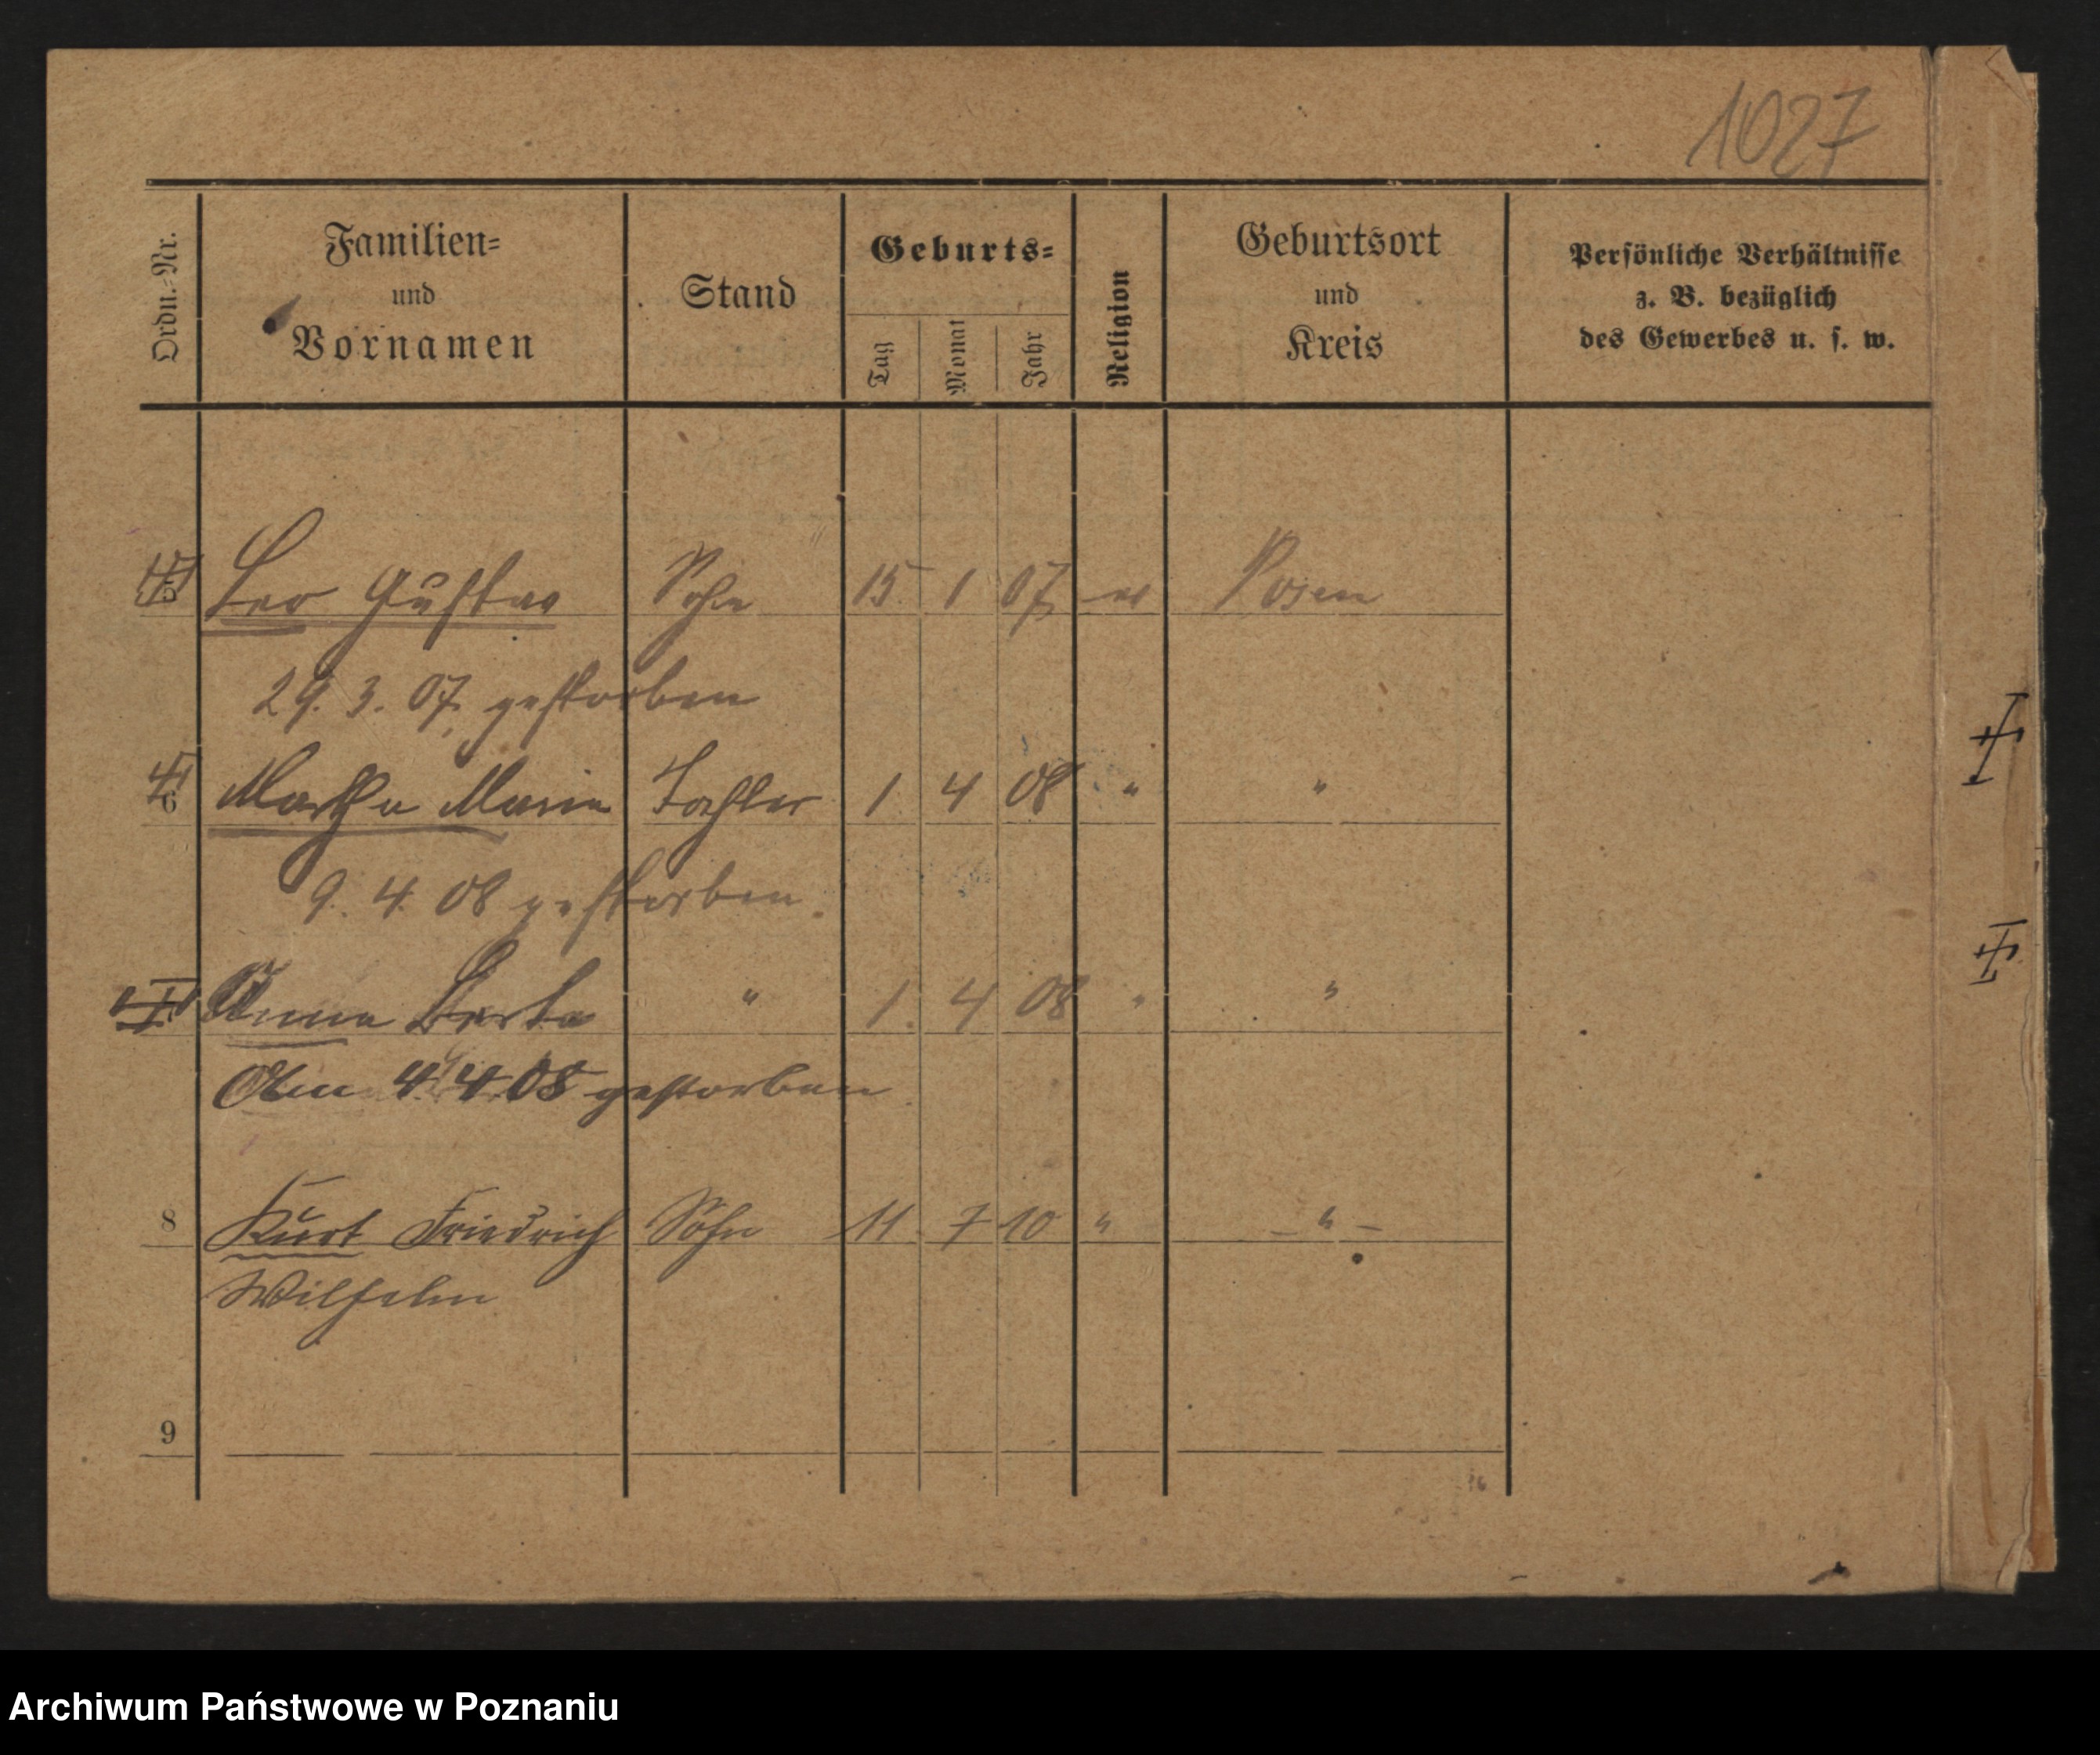 1027
Ordn.-Nr.
Familien-
und
Vornamen
Stand
Geburts-
Tag
Monat
Jahr
Religion
Geburtsort
und
Kreis
Persönliche Verhältnisse
z. B. bezüglich
des Gewerbes u. s. w.
5 Leo Gustav Sohn 15 1 07 ev Posen
29. 3. 07. gestorben
6 Martha Marie Tochter 1. 4 08 " "
9. 4. 08 gestorben.
Anna Berta " 1. 4 08 " "
Am 4. 4. 08 gestorben.
8 Kurt Friedrich Sohn 11. 7 10 " - " -
Wilhelm
9
Archiwum Państwowe w Poznaniu